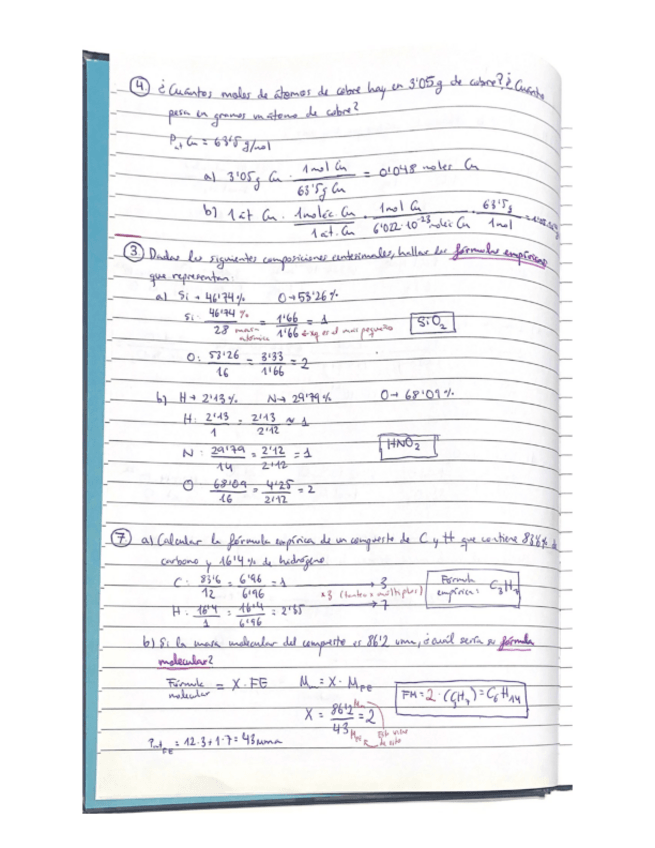 4 ¿Cuántos moles de átomos de cobre hay en 3'05 g de cobre? ¿Cuánto
pesa en gramos un átomo de cobre?
Pat Cu = 63'5 g/mol
a) 3'05 g Cu · 1 mol Cu / 63'5 g Cu = 0'048 moles Cu
b) 1 át Cu · 1 moléc Cu / 1 át. Cu · 1 mol Cu / 6'022·10^-23 moléc Cu · 63'5 g / 1 mol
3 Dadas las siguientes composiciones centesimales, hallar las fórmulas empíricas
que representan:
a) Si → 46'74% O → 53'26%
Si: 46'74 % / 28 masa atómica = 1'66 / 1'66 ← xq es el más pequeño = 1
SiO2
O: 53'26 / 16 = 3'33 / 1'66 = 2
b) H → 2'13% N → 29'79% O → 68'09%
H: 2'13 / 1 = 2'13 / 2'12 ≈ 1
HNO2
N: 29'79 / 14 = 2'12 / 2'12 = 1
O 68'09 / 16 = 4'25 / 2'12 = 2
7 a) Calcular la fórmula empírica de un compuesto de C y H que contiene 83'6% de
carbono y 16'4% de hidrógeno
C: 83'6 / 12 = 6'96 / 6'96 = 1 → 3
x3 (tanteo x múltiplos)
Fórmula empírica: C3H7
H: 16'4 / 1 = 16'4 / 6'96 = 2'35 → 7
b) Si la masa molecular del compuesto es 86'2 umas, ¿cuál sería su fórmula
molecular?
Fórmula molecular = X · FE Mm = X · MFE
FM = 2 · (C3H7) = C6H14
X = 86'2 / 43 = 2
= 12·3+1·7 = 43 umas